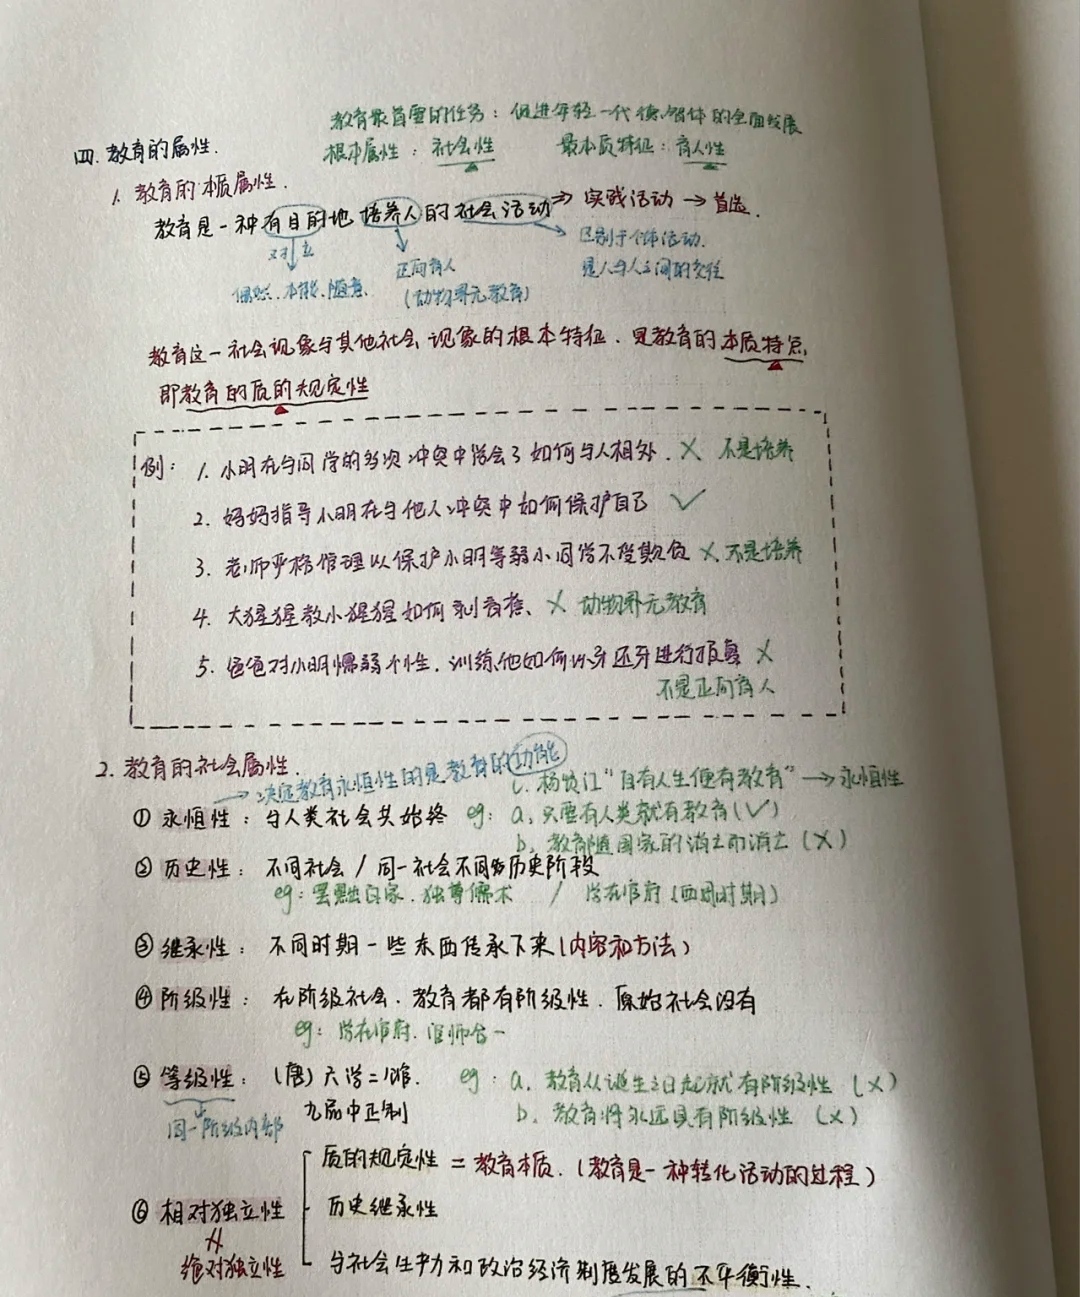 教育最首要的任务：促进年轻一代德、智、体的全面发展
四. 教育的属性.
根本属性：社会性 最本质特征：育人性
1. 教育的本质属性.
教育是一种有目的地培养人的社会活动 ⇒ 实践活动 → 首选.
对立
正向育人
区别于个体活动.
偶然、本能、随意、
(动物界无教育)
是人与人之间的交往
教育这一社会现象与其他社会现象的根本特征. 是教育的本质特点,
即教育的质的规定性
例：1. 小明在与同学的多次冲突中学会了如何与人相处. × 不是培养
2. 妈妈指导小明在与他人冲突中如何保护自己 ✓
3. 老师严格管理以保护小明等弱小同学不受欺负 × 不是培养
4. 大猩猩教小猩猩如何剥香蕉、 × 动物界无教育
5. 爸爸对小明懦弱个性. 训练他如何以牙还牙进行报复 ×
不是正向育人
2. 教育的社会属性.
→ 决定教育永恒性的是教育的功能
c. 杨贤江“自有人生便有教育” → 永恒性
① 永恒性：与人类社会共始终 eg：a. 只要有人类就有教育(✓)
b. 教育随国家的消亡而消亡 (×)
② 历史性：不同社会 / 同一社会不同的历史阶段
eg：罢黜百家. 独尊儒术 / 学在官府 (西周时期)
③ 继承性：不同时期一些东西传承下来(内容和方法)
④ 阶级性：在阶级社会. 教育都有阶级性. 原始社会没有
eg：学在官府. 官师合一
⑤ 等级性：(唐) 六学二馆. eg：a. 教育从诞生之日起就有阶级性 (×)
同一阶级内部
九品中正制
b. 教育将永远具有阶级性 (×)
质的规定性 = 教育本质. (教育是一种转化活动的过程)
⑥ 相对独立性
历史继承性
≠
绝对独立性
与社会生产力和政治经济制度发展的不平衡性.